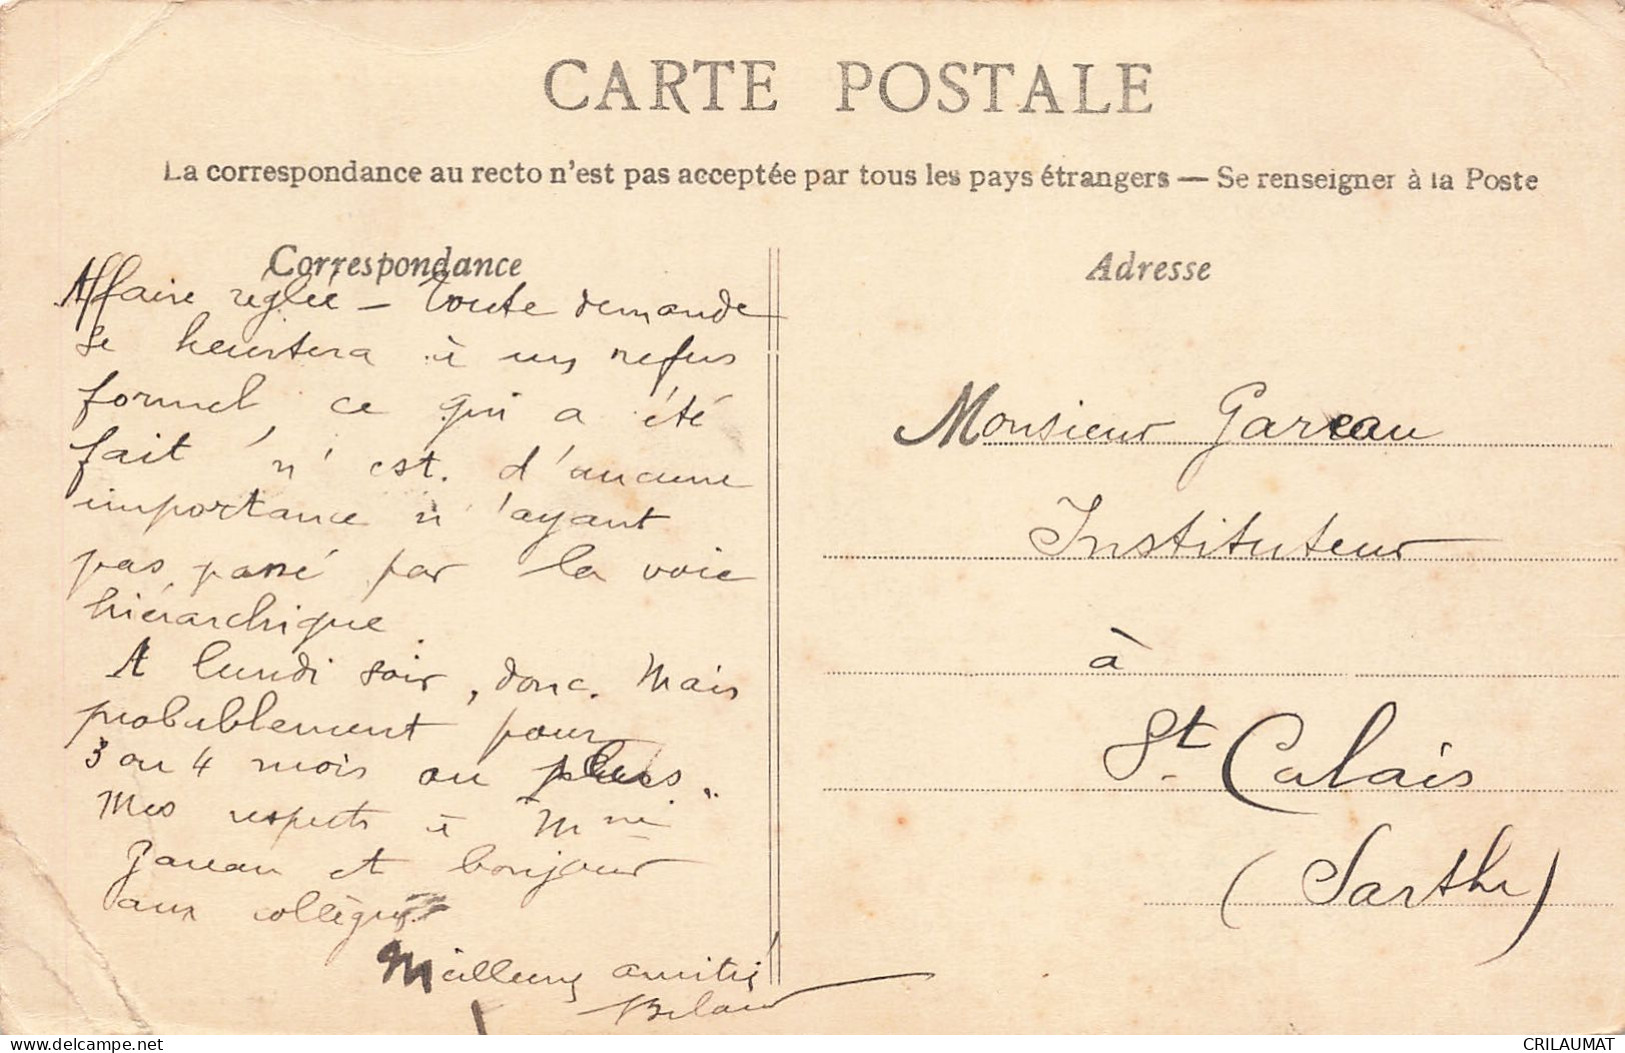 CARTE POSTALE
La correspondance au recto n'est pas acceptée par tous les pays étrangers — Se renseigner à la Poste
Correspondance
Affaire réglée — Toute demande
se heurtera à un refus
formel ce qui a été
fait n'est d'aucune
importance n'ayant
pas passé par la voie
hiérarchique
A lundi soir, donc. Mais
probablement pour
3 ou 4 mois ou plus..
Mes respects à Mme
Gareau et bonjour
aux collègues
Meilleures amitiés
Adresse
Monsieur Gareau
Instituteur
à
St. Calais
(Sarthe)
delcampe.net
CRILAUMAT